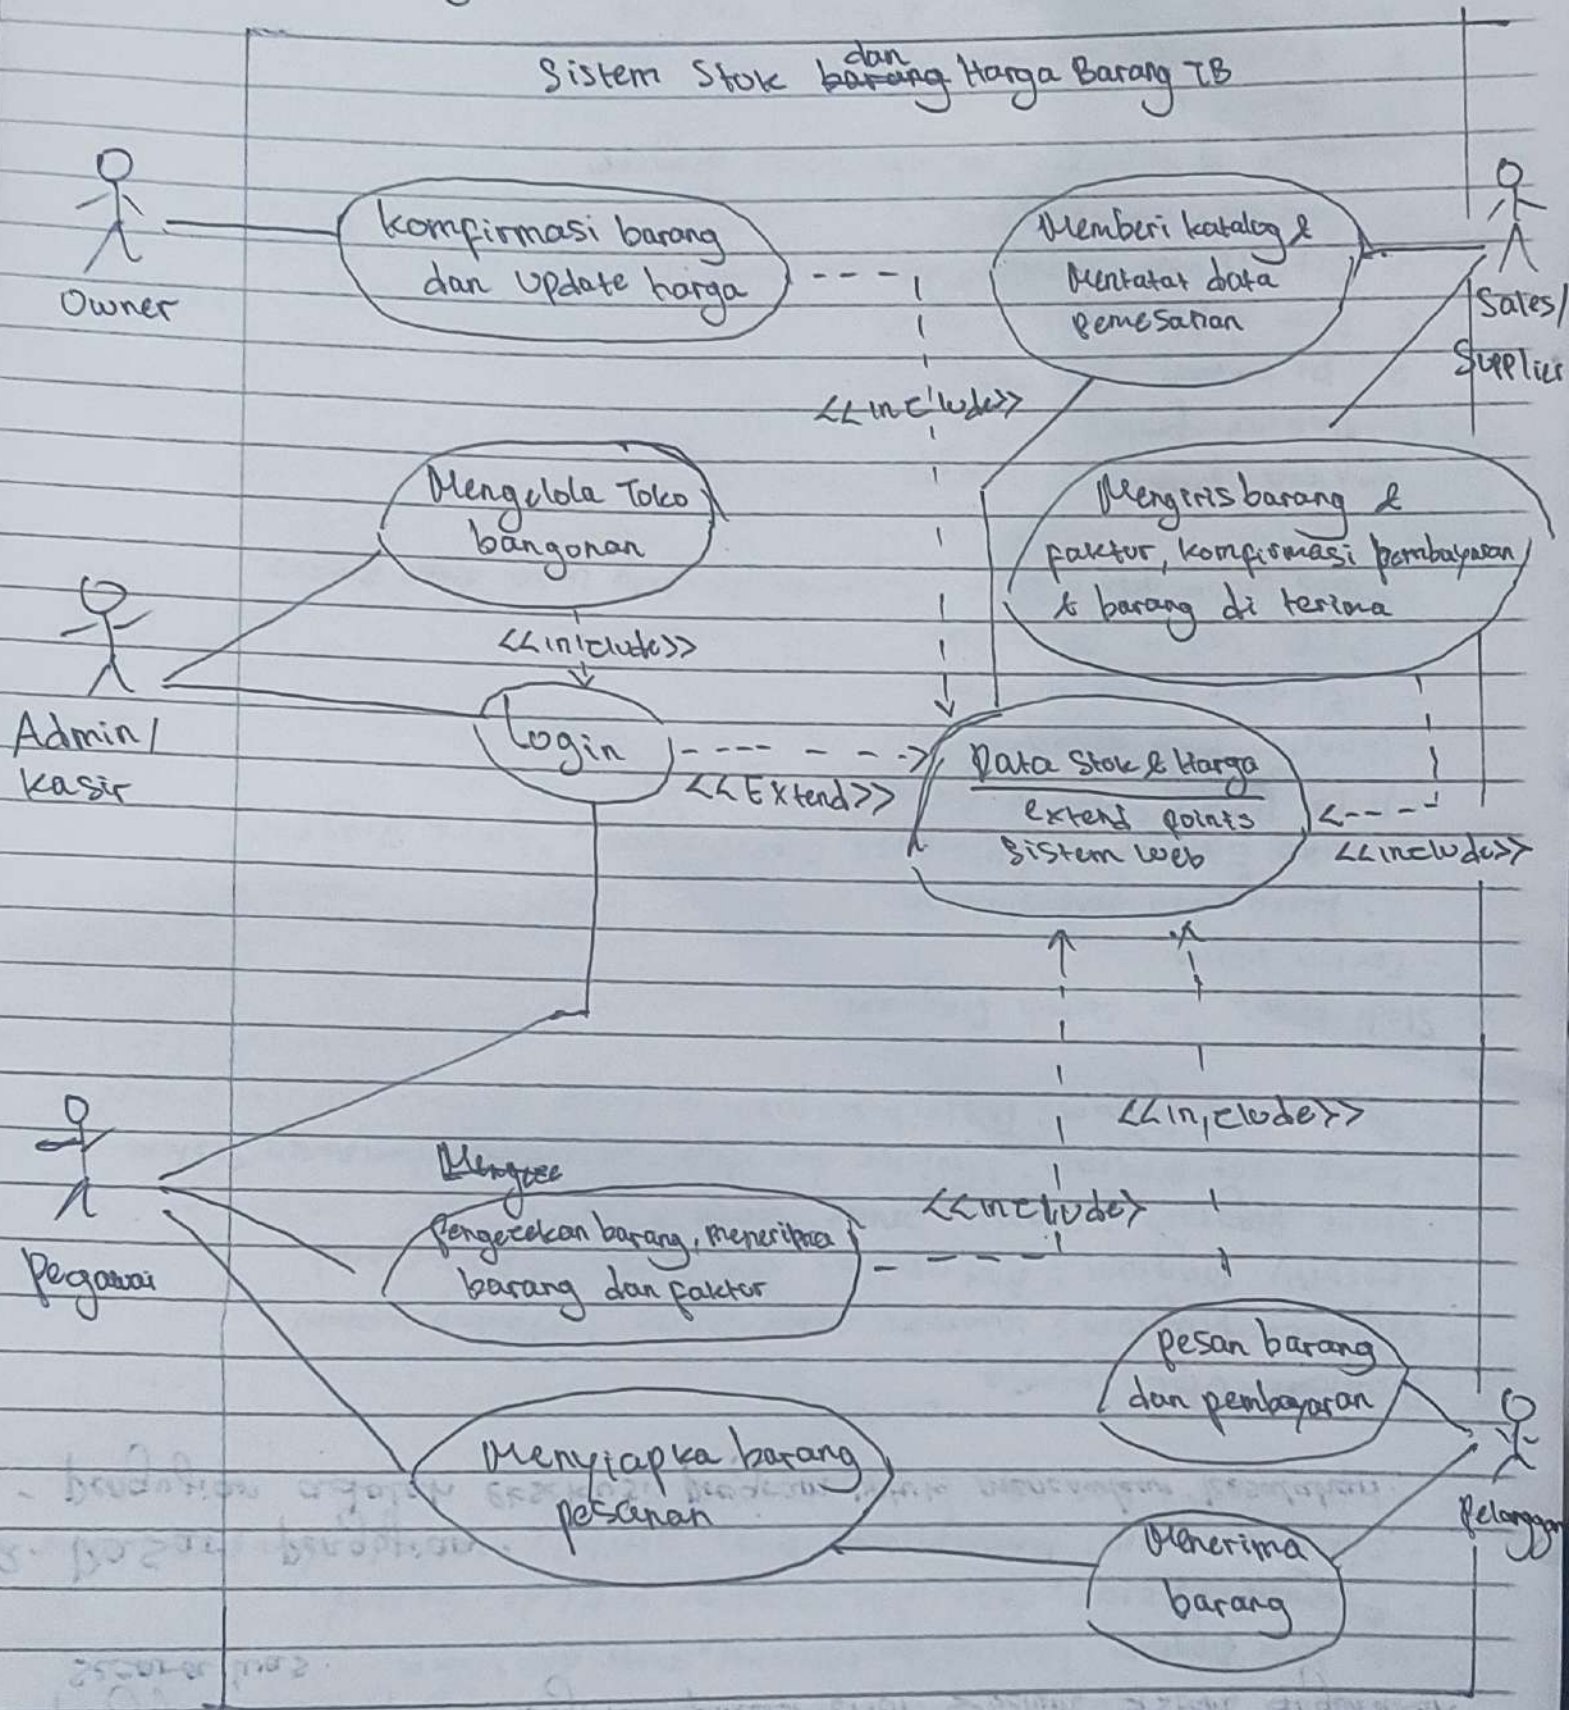 Sistem Stok barang Harga Barang TB
dan
Owner
Komfirmasi barang
dan update harga
Memberi katalog &
Mentatat data
pemesanan
Sales/
Supplier
<<include>>
Mengelola Toko
bangonan
Mengiris barang &
faktur, komfirmasi pembayaran
& barang di terima
<<include>>
Admin/
Kasir
Login
<<Extend>>
Data Stok & Harga
extend points
Sistem web
<<include>>
<<include>>
Pegawai
Pengecekan barang, menerima
barang dan faktur
<<include>
pesan barang
dan pembayaran
Menyiapka barang
pesanan
Pelanggan
Menerima
barang